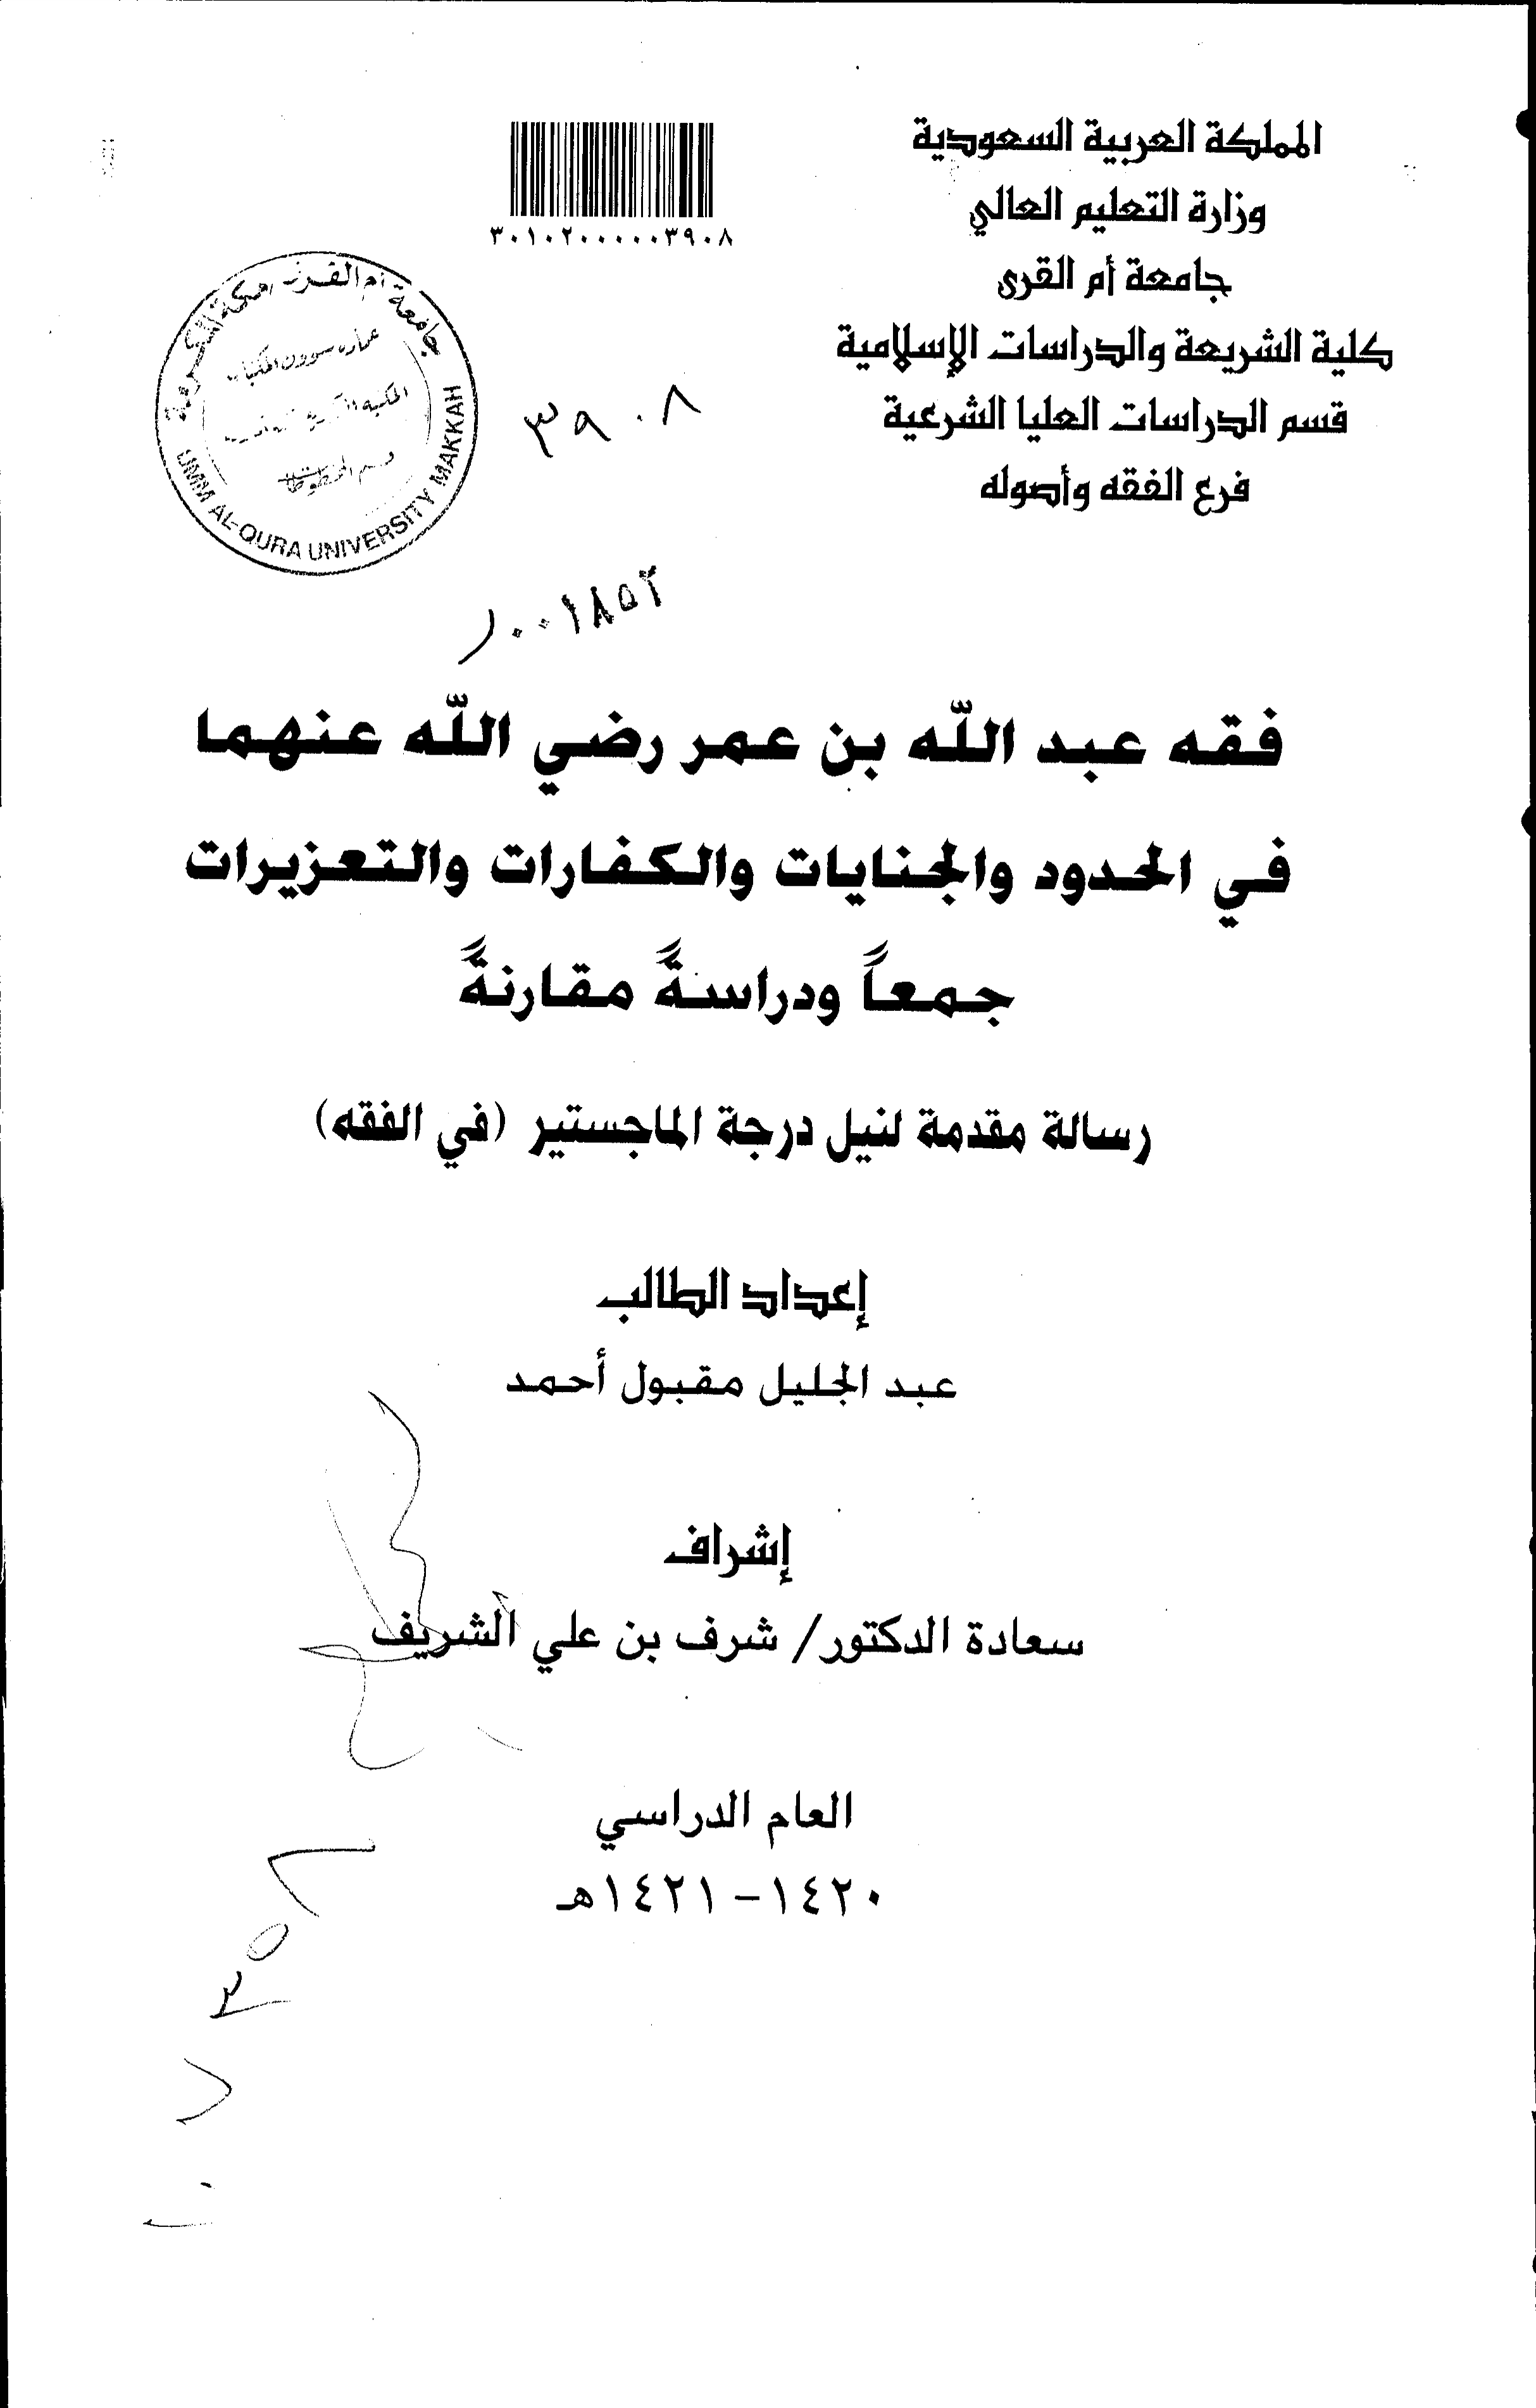 المملكة العربية السعودية
وزارة التعليم العالي
جامعة أم القرى
كلية الشريعة والدراسات الإسلامية
قسم الدراسات العليا الشرعية
فرع الفقه وأصوله
٣٠١٠٢٠٠٠٠٠٣٩٠٨
جامعة أم القرى مكة المكرمة
عمادة شؤون المكتبات
قسم المخطوطات
UMM AL-QURA UNIVERSITY MAKKAH
٣٩٠٨
فقه عبد اللّه بن عمر رضي اللّه عنهما
في الحدود والجنايات والكفارات والتعزيرات
جمعاً ودراسةً مقارنةً
رسالة مقدمة لنيل درجة الماجستير (في الفقه)
إعداد الطالب
عبد الجليل مقبول أحمد
إشراف
سعادة الدكتور/ شرف بن علي الشريف
العام الدراسي
١٤٢٠-١٤٢١هـ